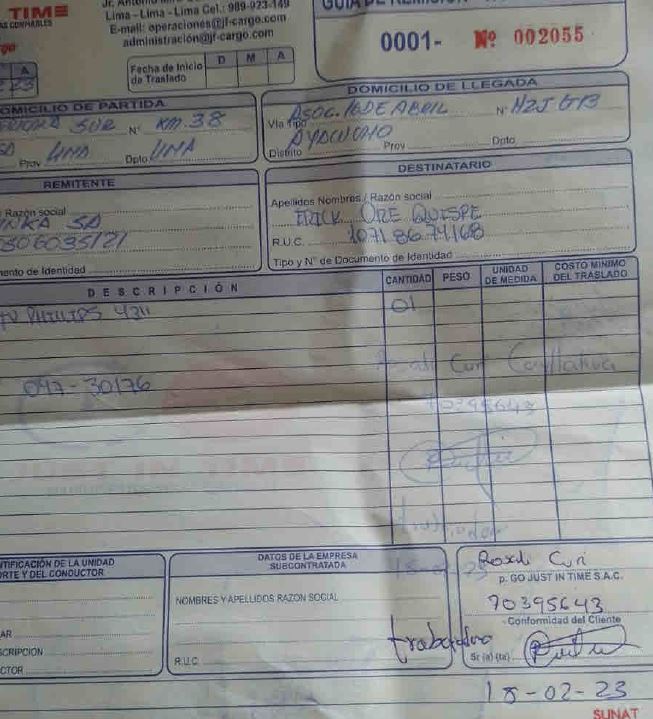 TIME
Lima - Lima - Lima Cel.: 989-923-149
E-mail: operaciones@jf-cargo.com
administración@jf-cargo.com
0001- Nº 002055
Fecha de Inicio de Traslado
D M A
DOMICILIO DE PARTIDA
SUR Nº KM. 38
Prov LIMA Dpto LIMA
DOMICILIO DE LLEGADA
Vía Tipo ASOC. 16 DE ABRIL Nº
AYACUCHO
Distrito Prov Dpto.
REMITENTE
Razón social
SA
mento de Identidad
DESTINATARIO
Apellidos Nombres / Razón social
ERICK ORE QUISPE
R.U.C. 10718674168
Tipo y N° de Documento de Identidad
DESCRIPCIÓN
CANTIDAD
PESO
UNIDAD DE MEDIDA
COSTO MINIMO DEL TRASLADO
TV PHILIPS 4311
01
047-30176
70395643
NTIFICACIÓN DE LA UNIDAD
ORTE Y DEL CONDUCTOR
SCRIPCION
CTOR
DATOS DE LA EMPRESA
SUBCONTRATADA
NOMBRES Y APELLIDOS RAZON SOCIAL
R.U.C.
Curi
p. GO JUST IN TIME S.A.C.
70395643
Conformidad del Cliente
Sr (a) (ta)
18-02-23
SUNAT